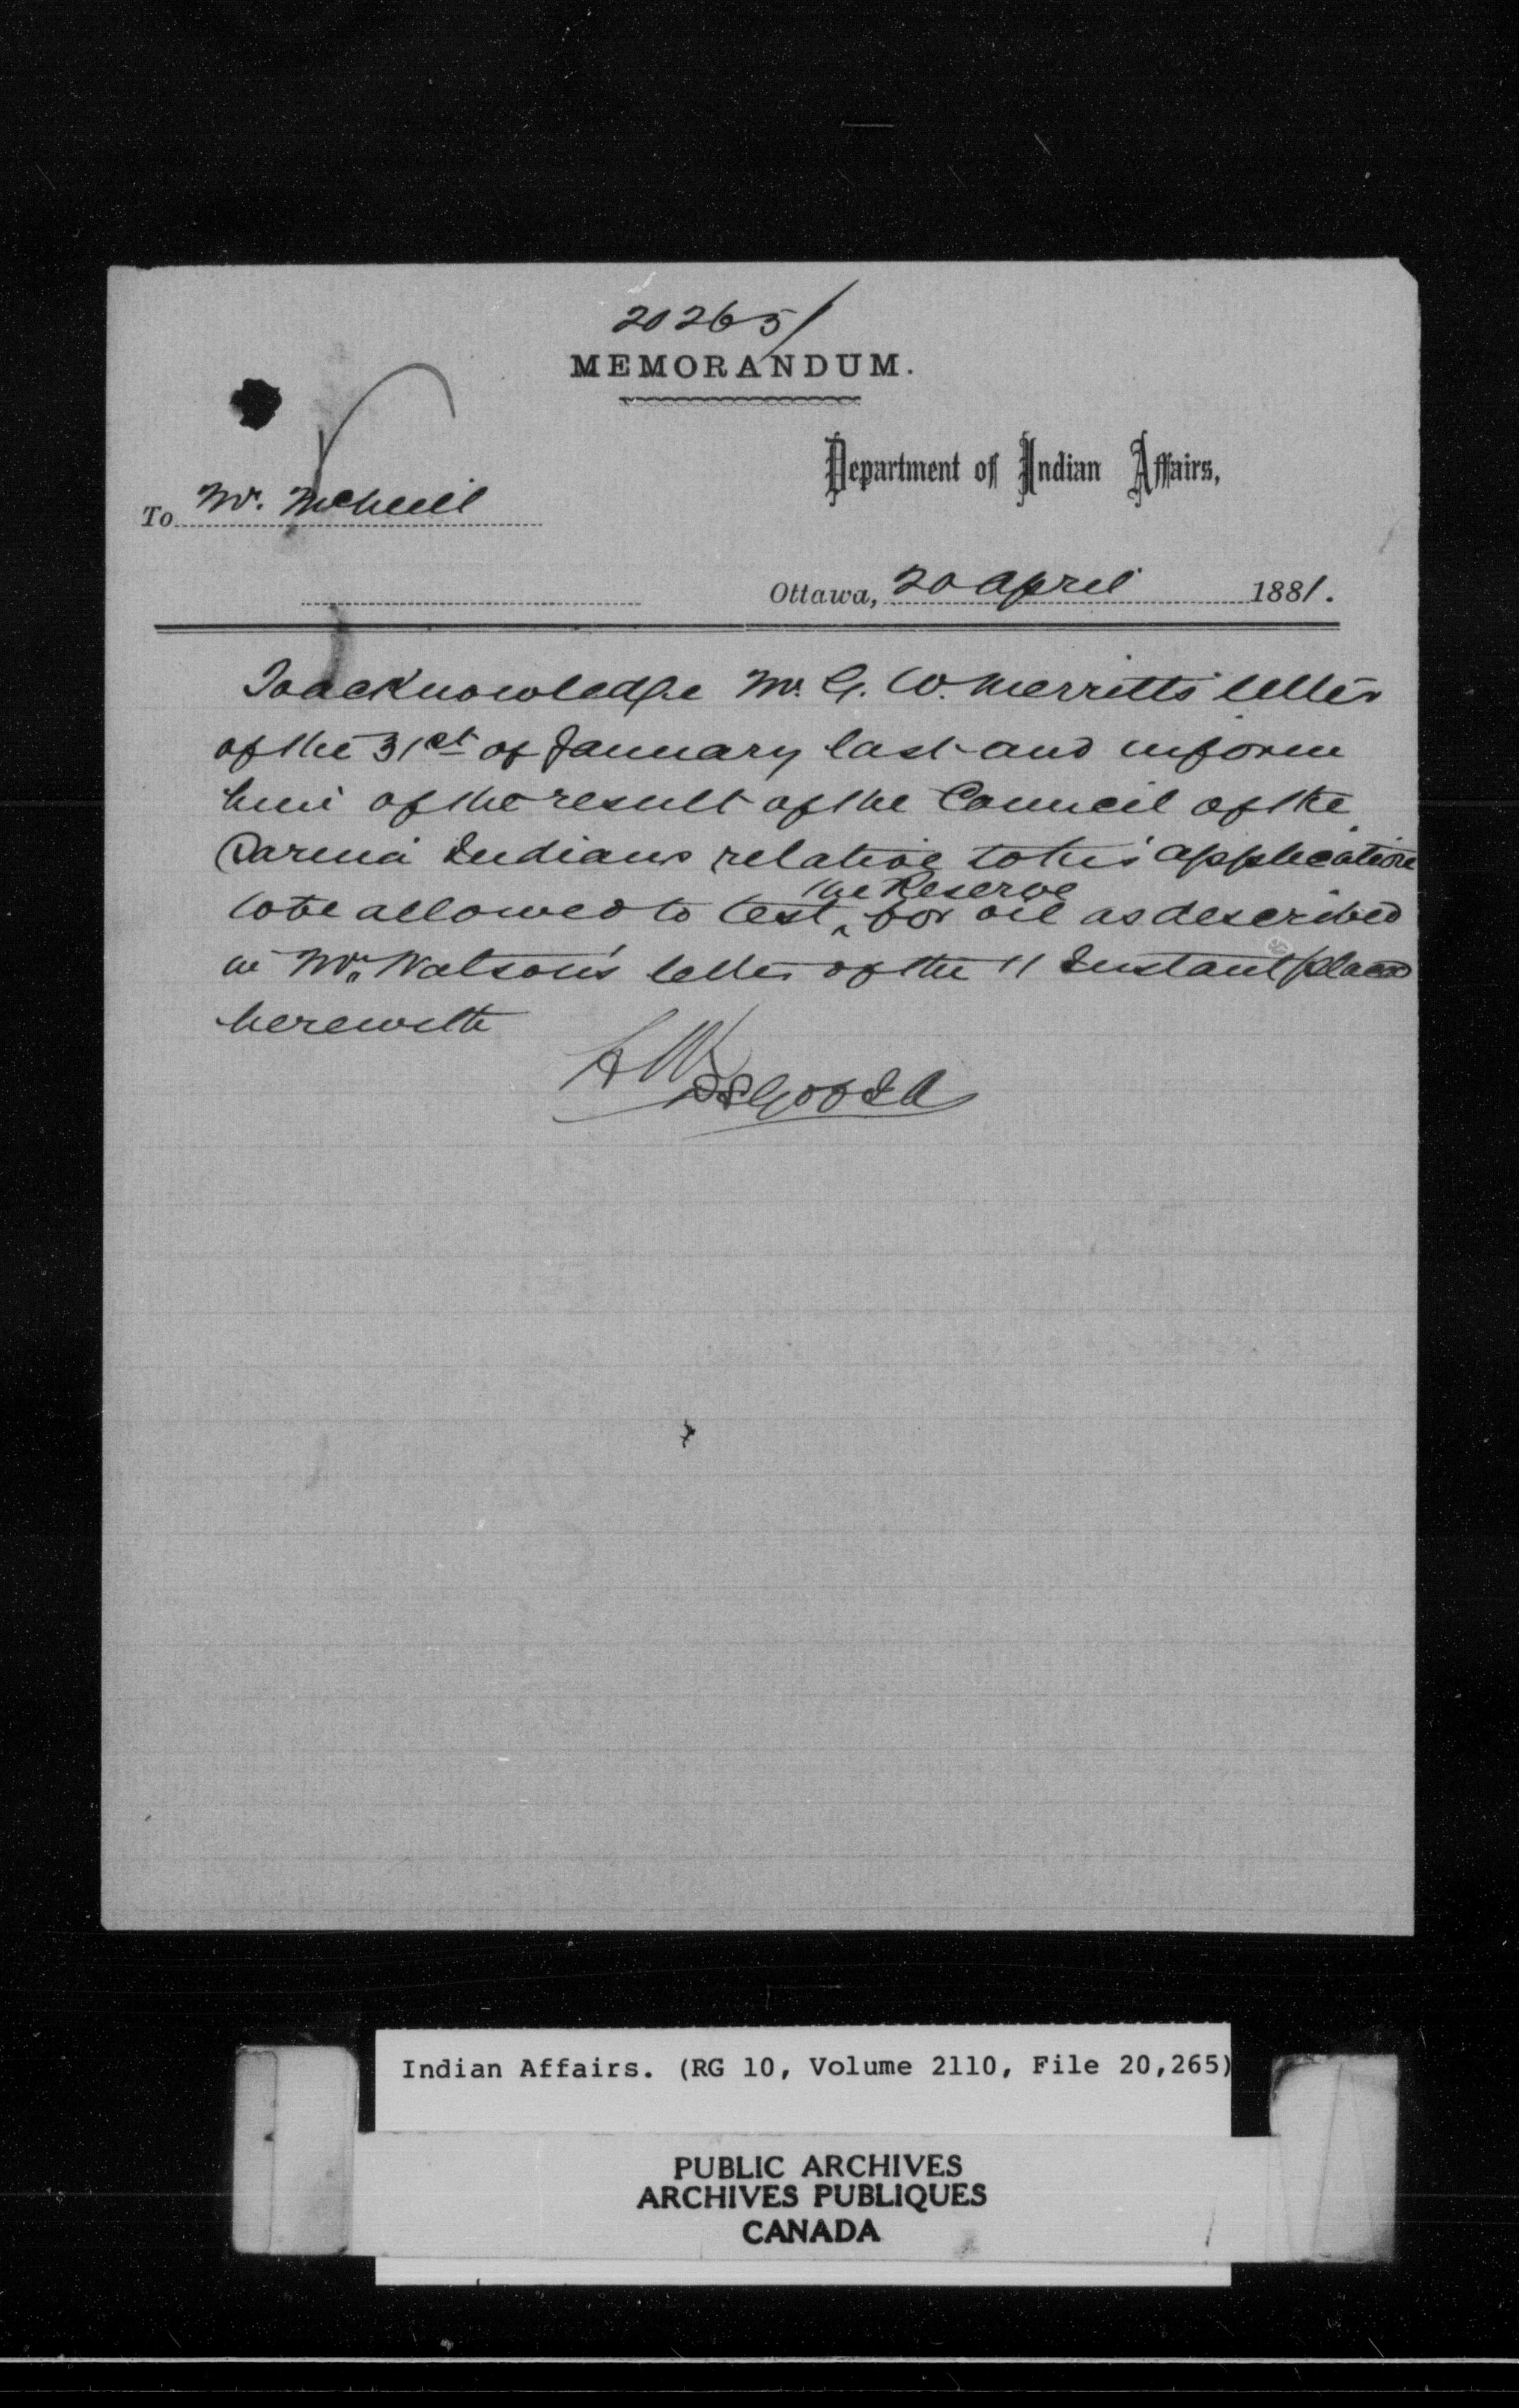 20265/
MEMORANDUM.
Department of Indian Affairs,
To Mr. McNeill
Ottawa, 20 April 1881.
To acknowledge Mr. G. W. Merritts letter
of the 31st of January last and inform
him of the result of the Council of the
Sarnia Indians relative to his application
the Reserve
to be allowed to test ^ for oil as described
in Mr. Watson's letter of the 11 Instant placed
herewith
Indian Affairs. (RG 10, Volume 2110, File 20,265)
PUBLIC ARCHIVES
ARCHIVES PUBLIQUES
CANADA